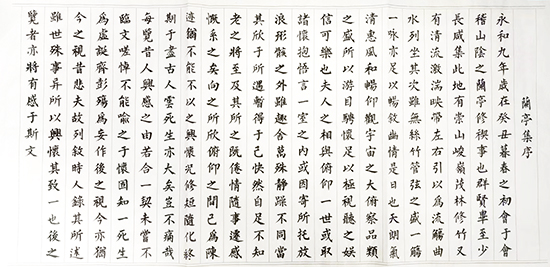 蘭亭集序
永和九年歲在癸丑暮春之初會于會
稽山陰之蘭亭修稧事也群賢畢至少
長咸集此地有崇山峻嶺茂林修竹又
有清流激湍映帶左右引以為流觴曲
水列坐其次雖無絲竹管弦之盛一觴
一詠亦足以暢敘幽情是日也天朗氣
清惠風和暢仰觀宇宙之大俯察品類
之盛所以游目騁懷足以極視聽之娛
信可樂也夫人之相與俯仰一世或取
諸懷抱悟言一室之內或因寄所托放
浪形骸之外雖趣舍萬殊靜躁不同當
其欣於所遇暫得于己快然自足不知
老之將至及其所之既倦情隨事遷感
慨系之矣向之所欣俯仰之間已為陳
迹猶不能不以之興懷況修短隨化終
期于盡古人云死生亦大矣豈不痛哉
每覽昔人興感之由若合一契未嘗不
臨文嗟悼不能喻之于懷固知一死生
為虛誕齊彭殤為妄作後之視今亦猶
今之視昔悲夫故列敘時人錄其所述
雖世殊事異所以興懷其致一也後之
覽者亦將有感于斯文